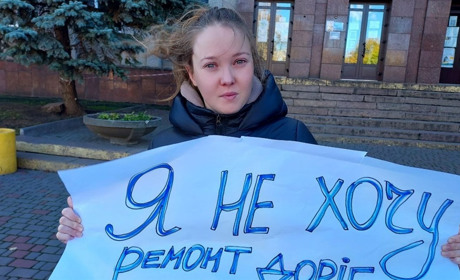 Я НЕ ХОЧУ
РЕМОНТ ДОРІГ